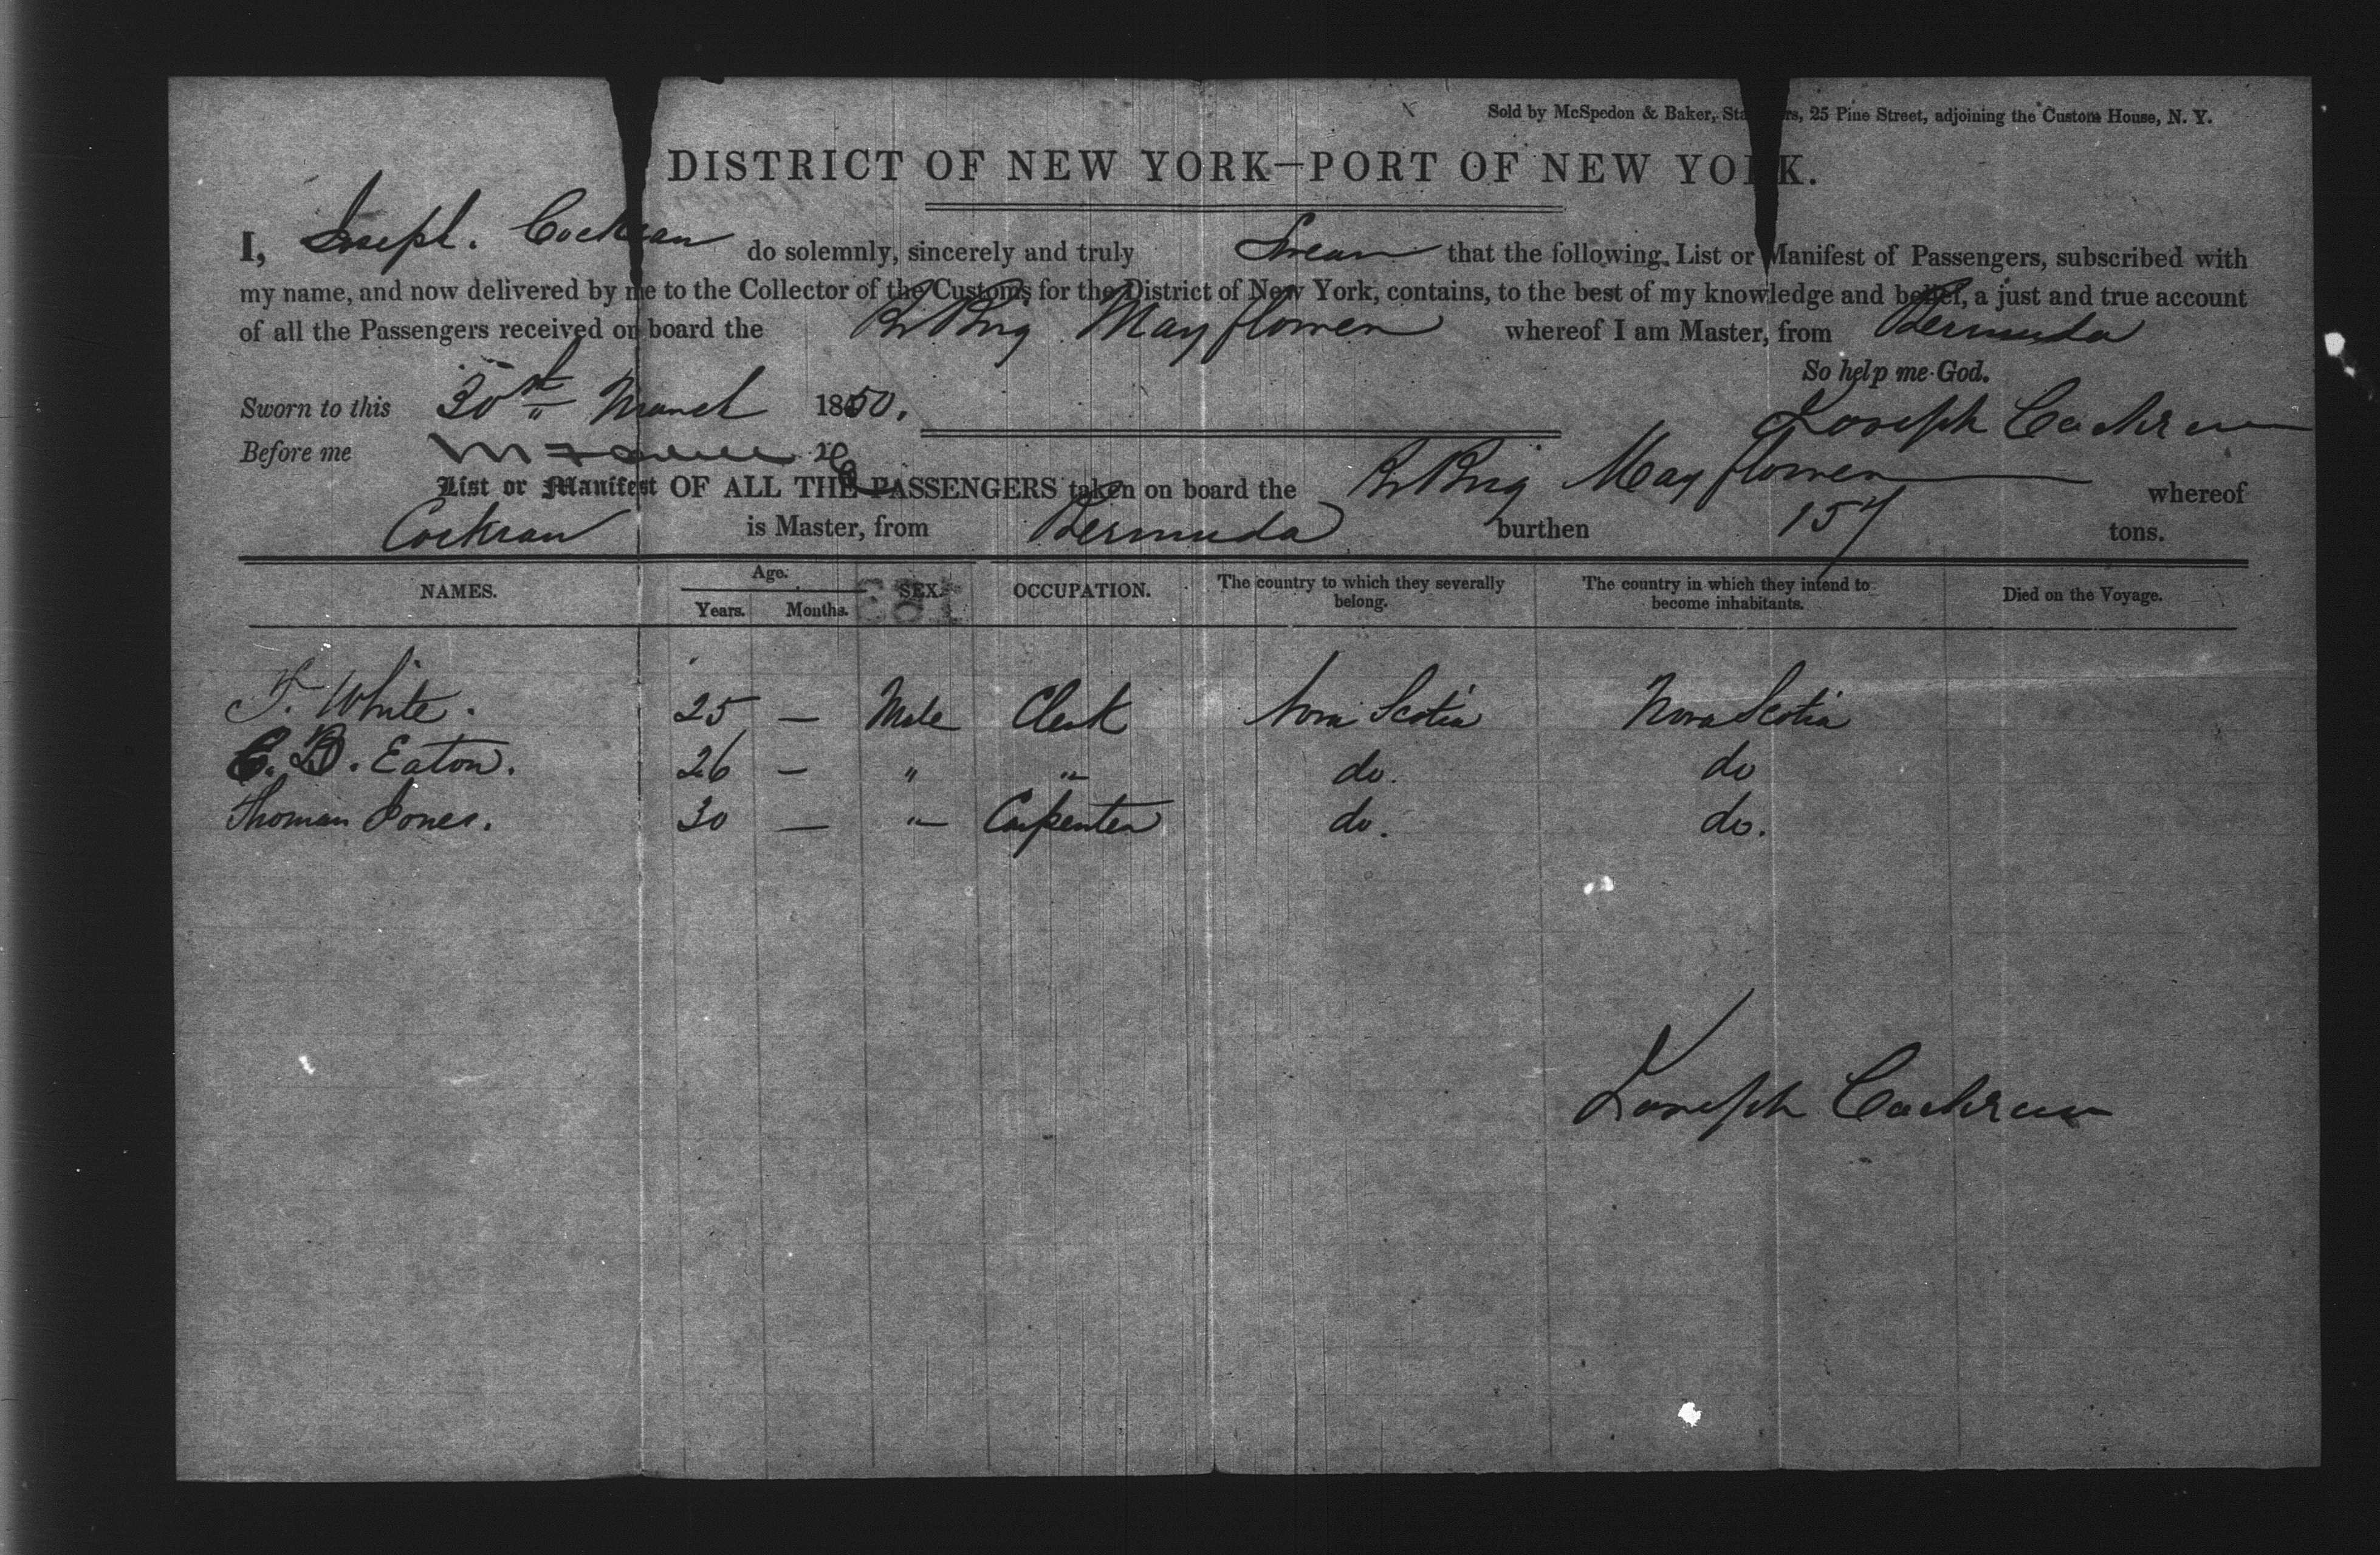 Sold by McSpedon & Baker, Sta rs, 25 Pine Street, adjoining the Custom House, N. Y.
DISTRICT OF NEW YORK—PORT OF NEW YORK.
I, Joseph. Cockran do solemnly, sincerely and truly Swear that the following List or Manifest of Passengers, subscribed with
my name, and now delivered by me to the Collector of the Customs for the District of New York, contains, to the best of my knowledge and belief, a just and true account
of all the Passengers received on board the Br Brig Mayflower whereof I am Master, from Bermuda
So help me God.
Sworn to this 30th March 1850. Joseph Cochran
Before me
List or Manifest OF ALL THE PASSENGERS taken on board the Br Brig Mayflower whereof
Cockran is Master, from Bermuda burthen 157 tons.
NAMES. Age. Years. Months. SEX. OCCUPATION. The country to which they severally belong. The country in which they intend to become inhabitants. Died on the Voyage.
183
T. White. 25 — Male Clerk Nova Scotia Nova Scotia
C. B. Eaton. 26 — " " do. do
Thomas Jones. 30 — " Carpenter do. do.
Joseph Cochran